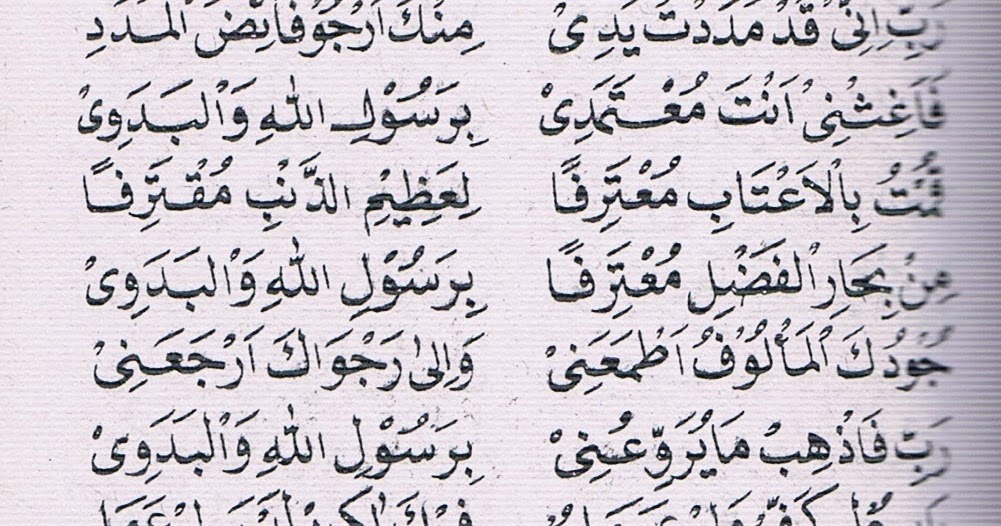 رَبِّ اِنِّىْ قَدْ مَدَدْتُ يَدِىْ مِنْكَ اَرْجُوْ فَائِضَ الْمَدَدِ
فَاَغِثْنِىْ اَنْتَ مُعْتَمَدِىْ بِرَسُوْلِ اللهِ وَالْبَدَوِىْ
قُمْتُ بِالْاَعْتَابِ مُعْتَرِفًا لِعَظِيْمِ الذَّنْبِ مُقْتَرِفًا
مِنْ بِحَارِ الْفَضْلِ مُغْتَرِفًا بِرَسُوْلِ اللهِ وَالْبَدَوِىْ
جُوْدُكَ الْمَأْلُوْفُ اَطْمَعَنِىْ وَاِلىٰ رَجْوَاكَ اَرْجَعَنِىْ
رَبِّ فَاذْهِبْ مَا يُرَوِّعُنِىْ بِرَسُوْلِ اللهِ وَالْبَدَوِىْ